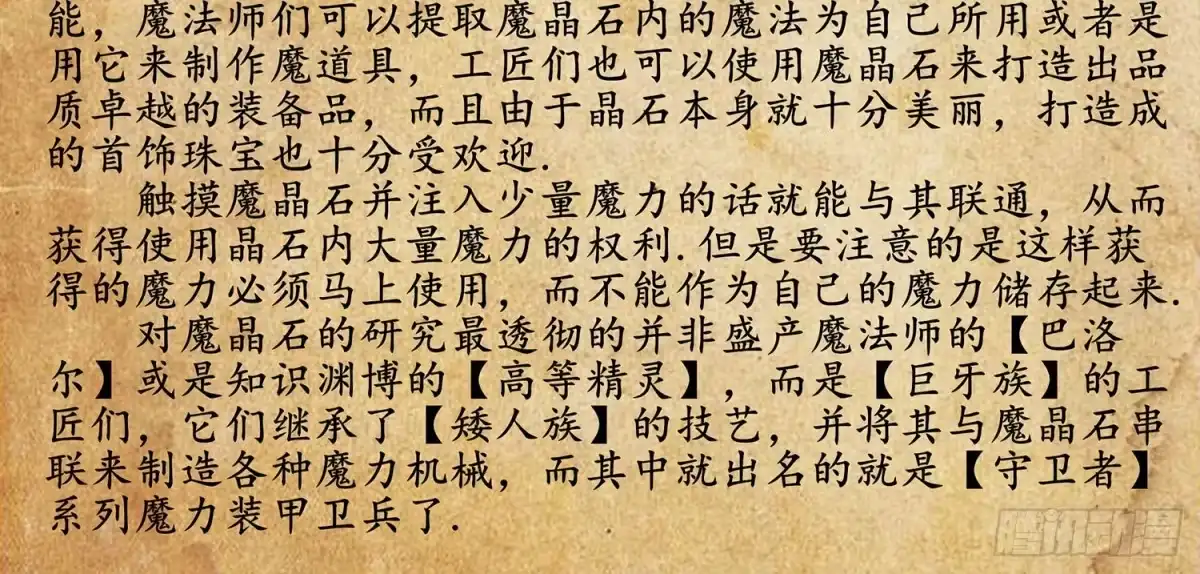 能，魔法师们可以提取魔晶石内的魔法为自己所用或者是
用它来制作魔道具，工匠们也可以使用魔晶石来打造出品
质卓越的装备品，而且由于晶石本身就十分美丽，打造成
的首饰珠宝也十分受欢迎.
触摸魔晶石并注入少量魔力的话就能与其联通，从而
获得使用晶石内大量魔力的权利.但是要注意的是这样获
得的魔力必须马上使用，而不能作为自己的魔力储存起来.
对魔晶石的研究最透彻的并非盛产魔法师的【巴洛
尔】或是知识渊博的【高等精灵】，而是【巨牙族】的工
匠们，它们继承了【矮人族】的技艺，并将其与魔晶石串
联来制造各种魔力机械，而其中就出名的就是【守卫者】
系列魔力装甲卫兵了.
腾讯动漫